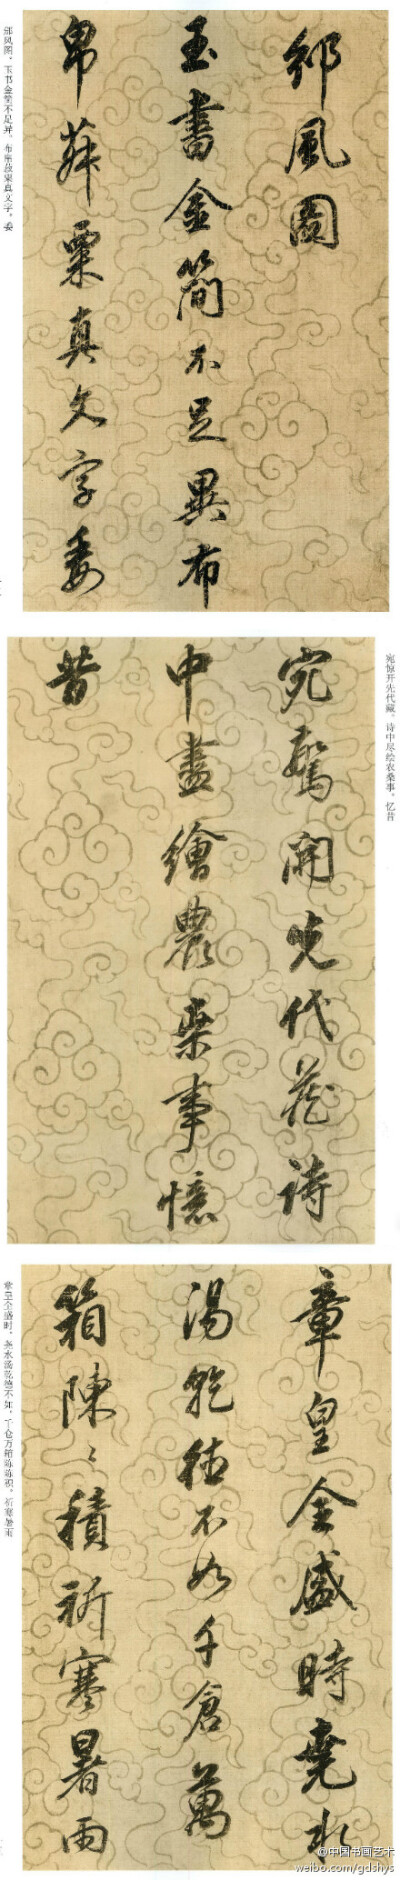 邠風圖
玉書金簡不足異布
帛菽粟真文字委
邠风图，玉书金简不足异，布帛菽粟真文字，委
宛驚開先代藏詩
中盡繪農桑事憶
昔
宛惊开先代藏，诗中尽绘农桑事，忆昔
章皇全盛時堯水
湯乾不如千倉萬
箱陳〻積祈寒暑雨
章皇全盛时，尧水汤乾不如，千仓万箱陈陈积，祈寒暑雨
@中国书画艺术
weibo.com/gdshys